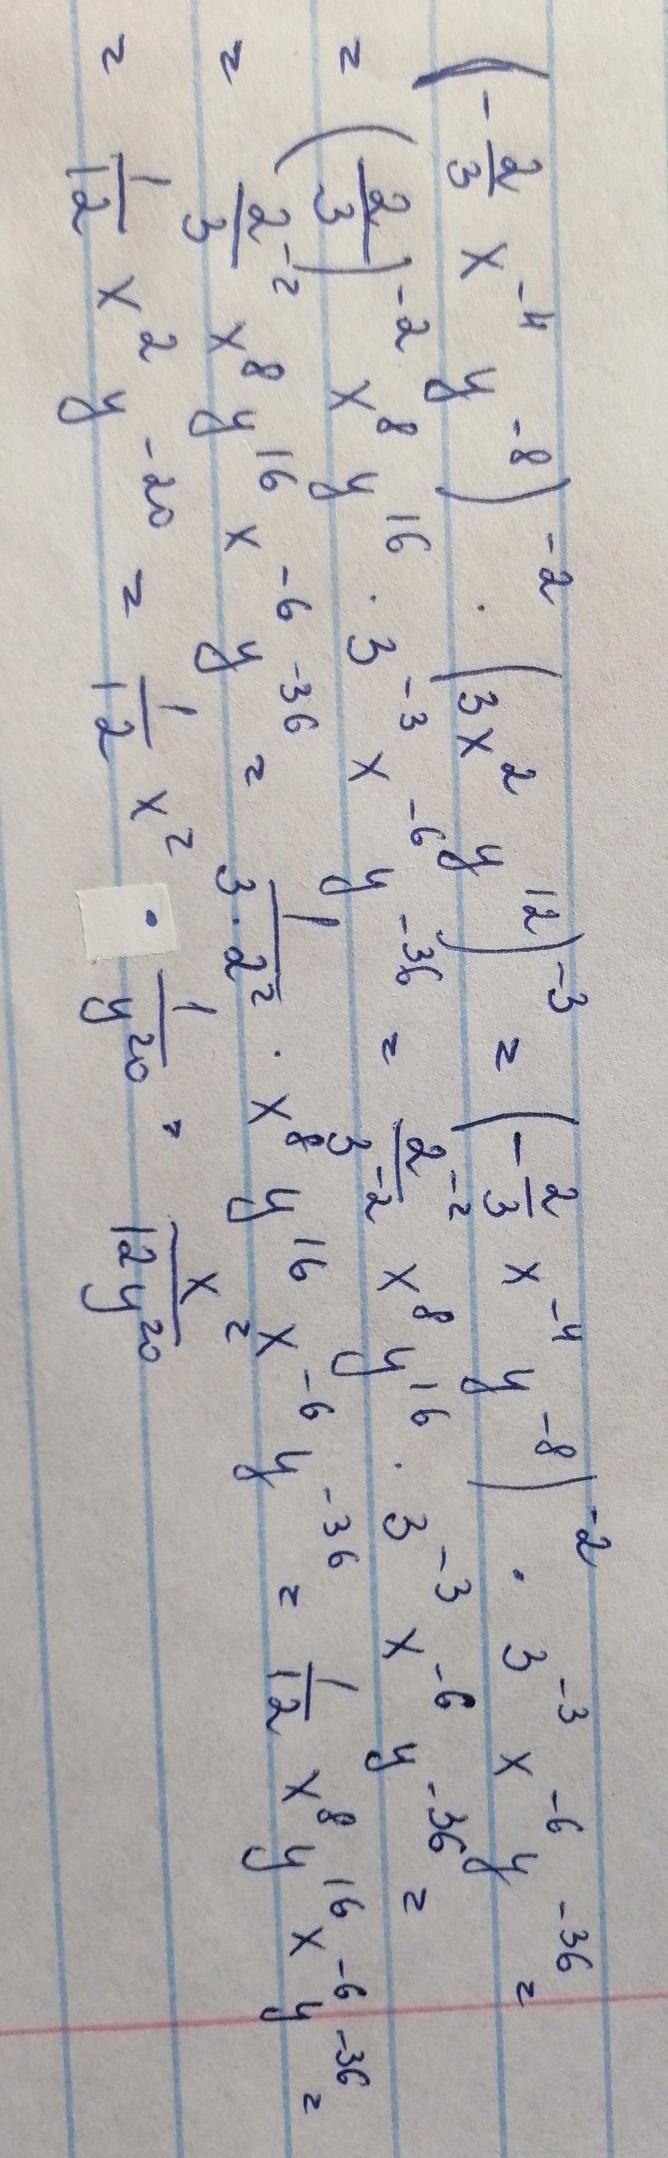 (-2/3 x^-4 y^-8)^-2 · (3x^2 y^12)^-3 = (-2/3 x^-4 y^-8)^-2 · 3^-3 x^-6 y^-36 =
= (2/3)^-2 x^8 y^16 · 3^-3 x^-6 y^-36 = 2^-2/3^-2 x^8 y^16 · 3^-3 x^-6 y^-36 =
= 2^-2/3 x^8 y^16 x^-6 y^-36 = 1/3·2^2 · x^8 y^16 x^-6 y^-36 = 1/12 x^8 y^16 x^-6 y^-36 =
= 1/12 x^2 y^-20 = 1/12 x^2 · 1/y^20 = x^2/12y^20